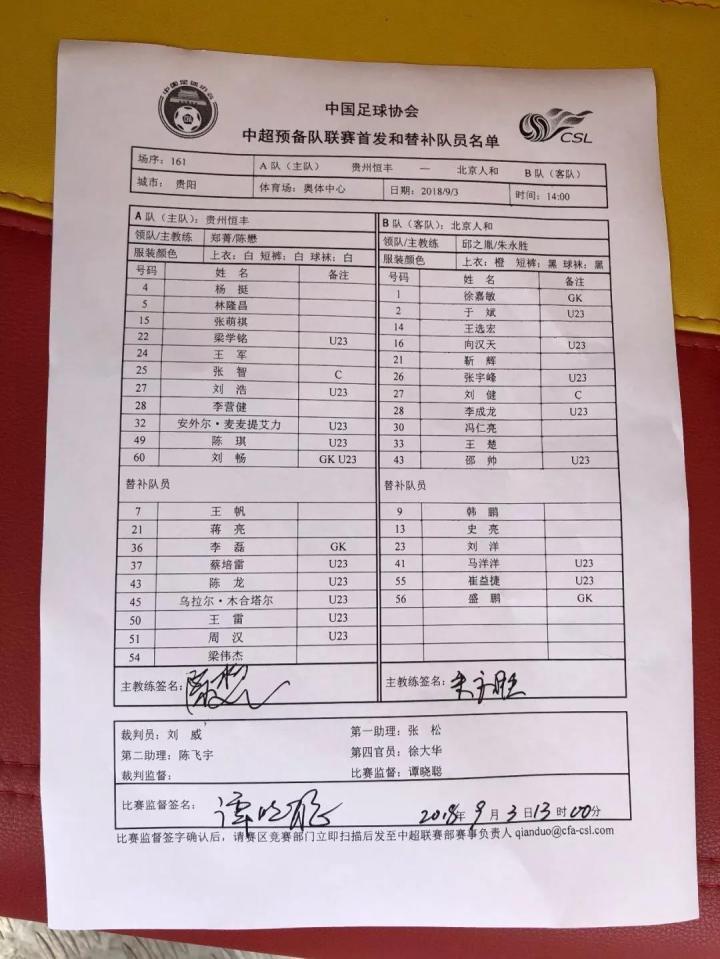 中国足球协会
CSL
中超预备队联赛首发和替补队员名单
场序：161 A 队（主队） 贵州恒丰 — 北京人和 B 队（客队）
城市： 贵阳 体育场：奥体中心 日期：2018/9/3 时间：14:00
A 队（主队）：贵州恒丰
领队/主教练 郑菁/陈懋
服装颜色 上衣：白 短裤：白 球袜：白
号码 姓 名 备注
4 杨 挺
5 林隆昌
15 张萌祺
22 梁学铭 U23
24 王 军
25 张 智 C
27 刘 浩 U23
28 李营健
32 安外尔·麦麦提艾力 U23
49 陈 琪 U23
60 刘 畅 GK U23
替补队员
7 王 帆
21 蒋 亮
36 李 磊 GK
37 蔡培雷 U23
43 陈 龙 U23
45 乌拉尔·木合塔尔 U23
50 王 雷 U23
51 周 汉 U23
54 梁伟杰
主教练签名：
B 队（客队）：北京人和
领队/主教练 邱之胤/朱永胜
服装颜色 上衣：橙 短裤：黑 球袜：黑
号码 姓 名 备注
1 徐嘉敏 GK
2 于 斌 U23
14 王选宏
16 向汉天 U23
21 靳 辉
26 张宇峰 U23
27 刘 健 C
28 李成龙 U23
30 冯仁亮
33 王 楚
43 邵 帅 U23
替补队员
9 韩 鹏
13 史 亮
23 刘 洋
41 马洋洋 U23
55 崔益捷 U23
56 盛 鹏 GK
主教练签名：朱永胜
裁判员：刘 威 第一助理：张 松
第二助理：陈飞宇 第四官员：徐大华
裁判监督： 比赛监督：谭晓聪
比赛监督签名： 2018年 9 月 3 日 13 时 00分
比赛监督签字确认后，请赛区竞赛部门立即扫描后发至中超联赛部赛事负责人 qianduo@cfa-csl.com